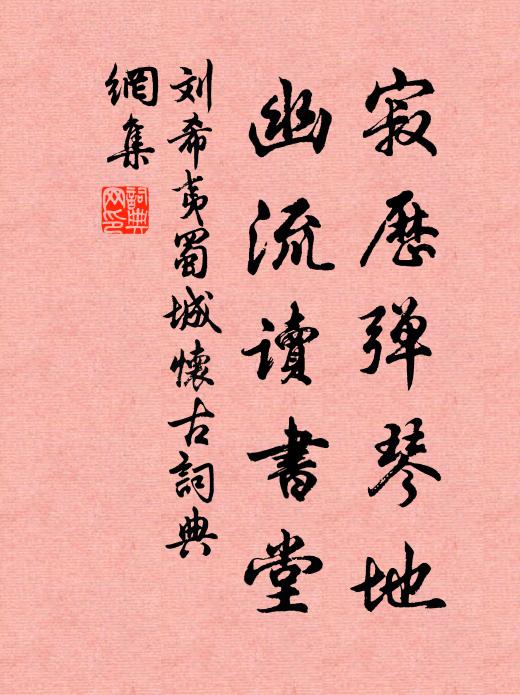 寂历弹琴地
幽流读书堂
刘希夷蜀城懷古詞典
網集
詞典網印